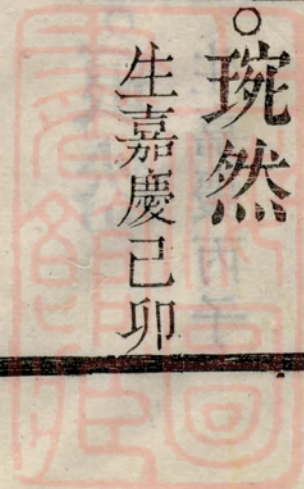 ○琬然
生嘉慶己卯